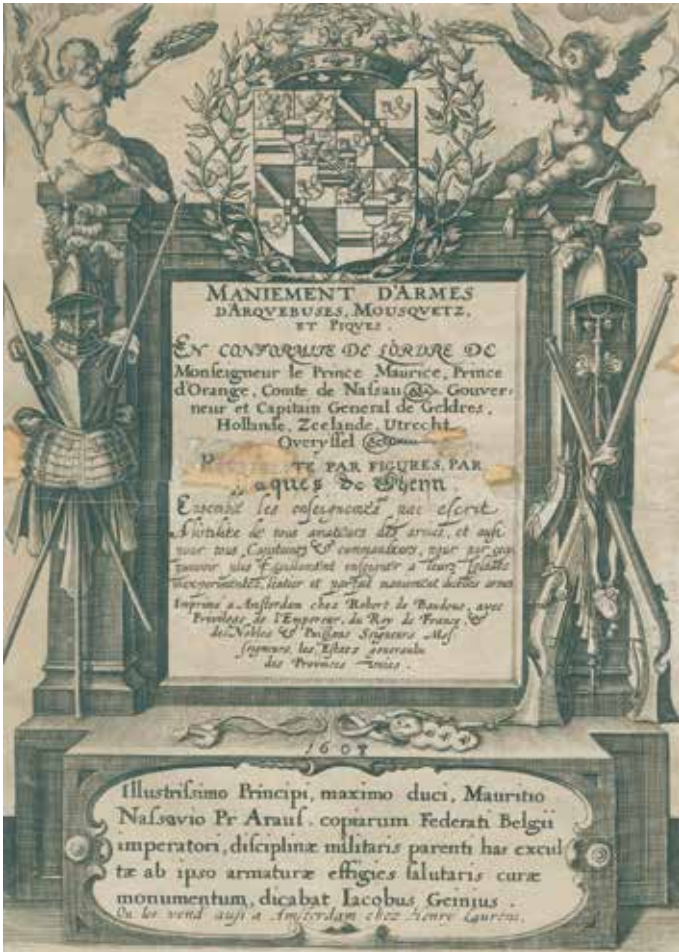 MANIEMENT D'ARMES
D'ARQVEBUSES, MOUSQVETZ,
ET PIQVES.
EN CONFORMITE DE L'ORDRE DE
Monseigneur le Prince Maurice, Prince
d'Orange, Comte de Nassau &c. Gouver-
neur et Capitain General de Geldres,
Hollande, Zeelande, Utrecht
Overyssel &c.
TE PAR FIGURES, PAR
aques de Gheÿn
Ensemble les enseignemens par escrit
A l'utilite de tous amateurs des armes, et aussi
pour tous Capitaines & commandeurs, pour par cecy
pouvoir plus facillement enseigner a leurs soldatz
inexperimentez, l'entier et parfait maniement d'icelles armes
Imprime a Amsterdam chez Robert de Baudous, avec
Privilege de l'Empereur, du Roy de France, &
des Nobles & Puissans Seigneurs Mes
seigneurs les Estats generaulx
des Provinces unies.
1608
Illustrissimo Principi, maximo duci, Mauritio
Nassavio Pr Araus. copiarum Federati Belgii
imperatori, disciplinæ militaris parenti has excul
tæ ab ipso armaturæ effigies salutaris curæ
monumentum, dicabat Iacobus Geinius.
On les vend ausi a Amsterdam chez Henri Laurens.